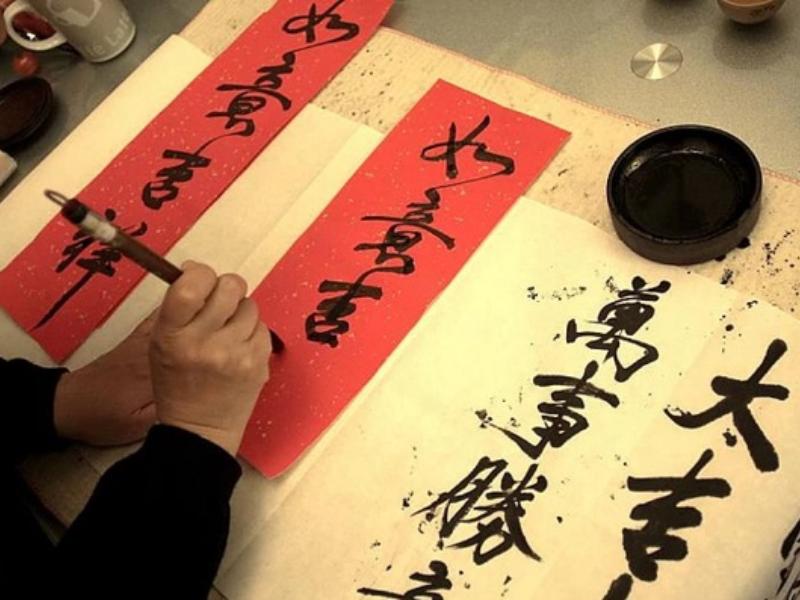 如意吉祥
如意吉
大吉
萬事勝